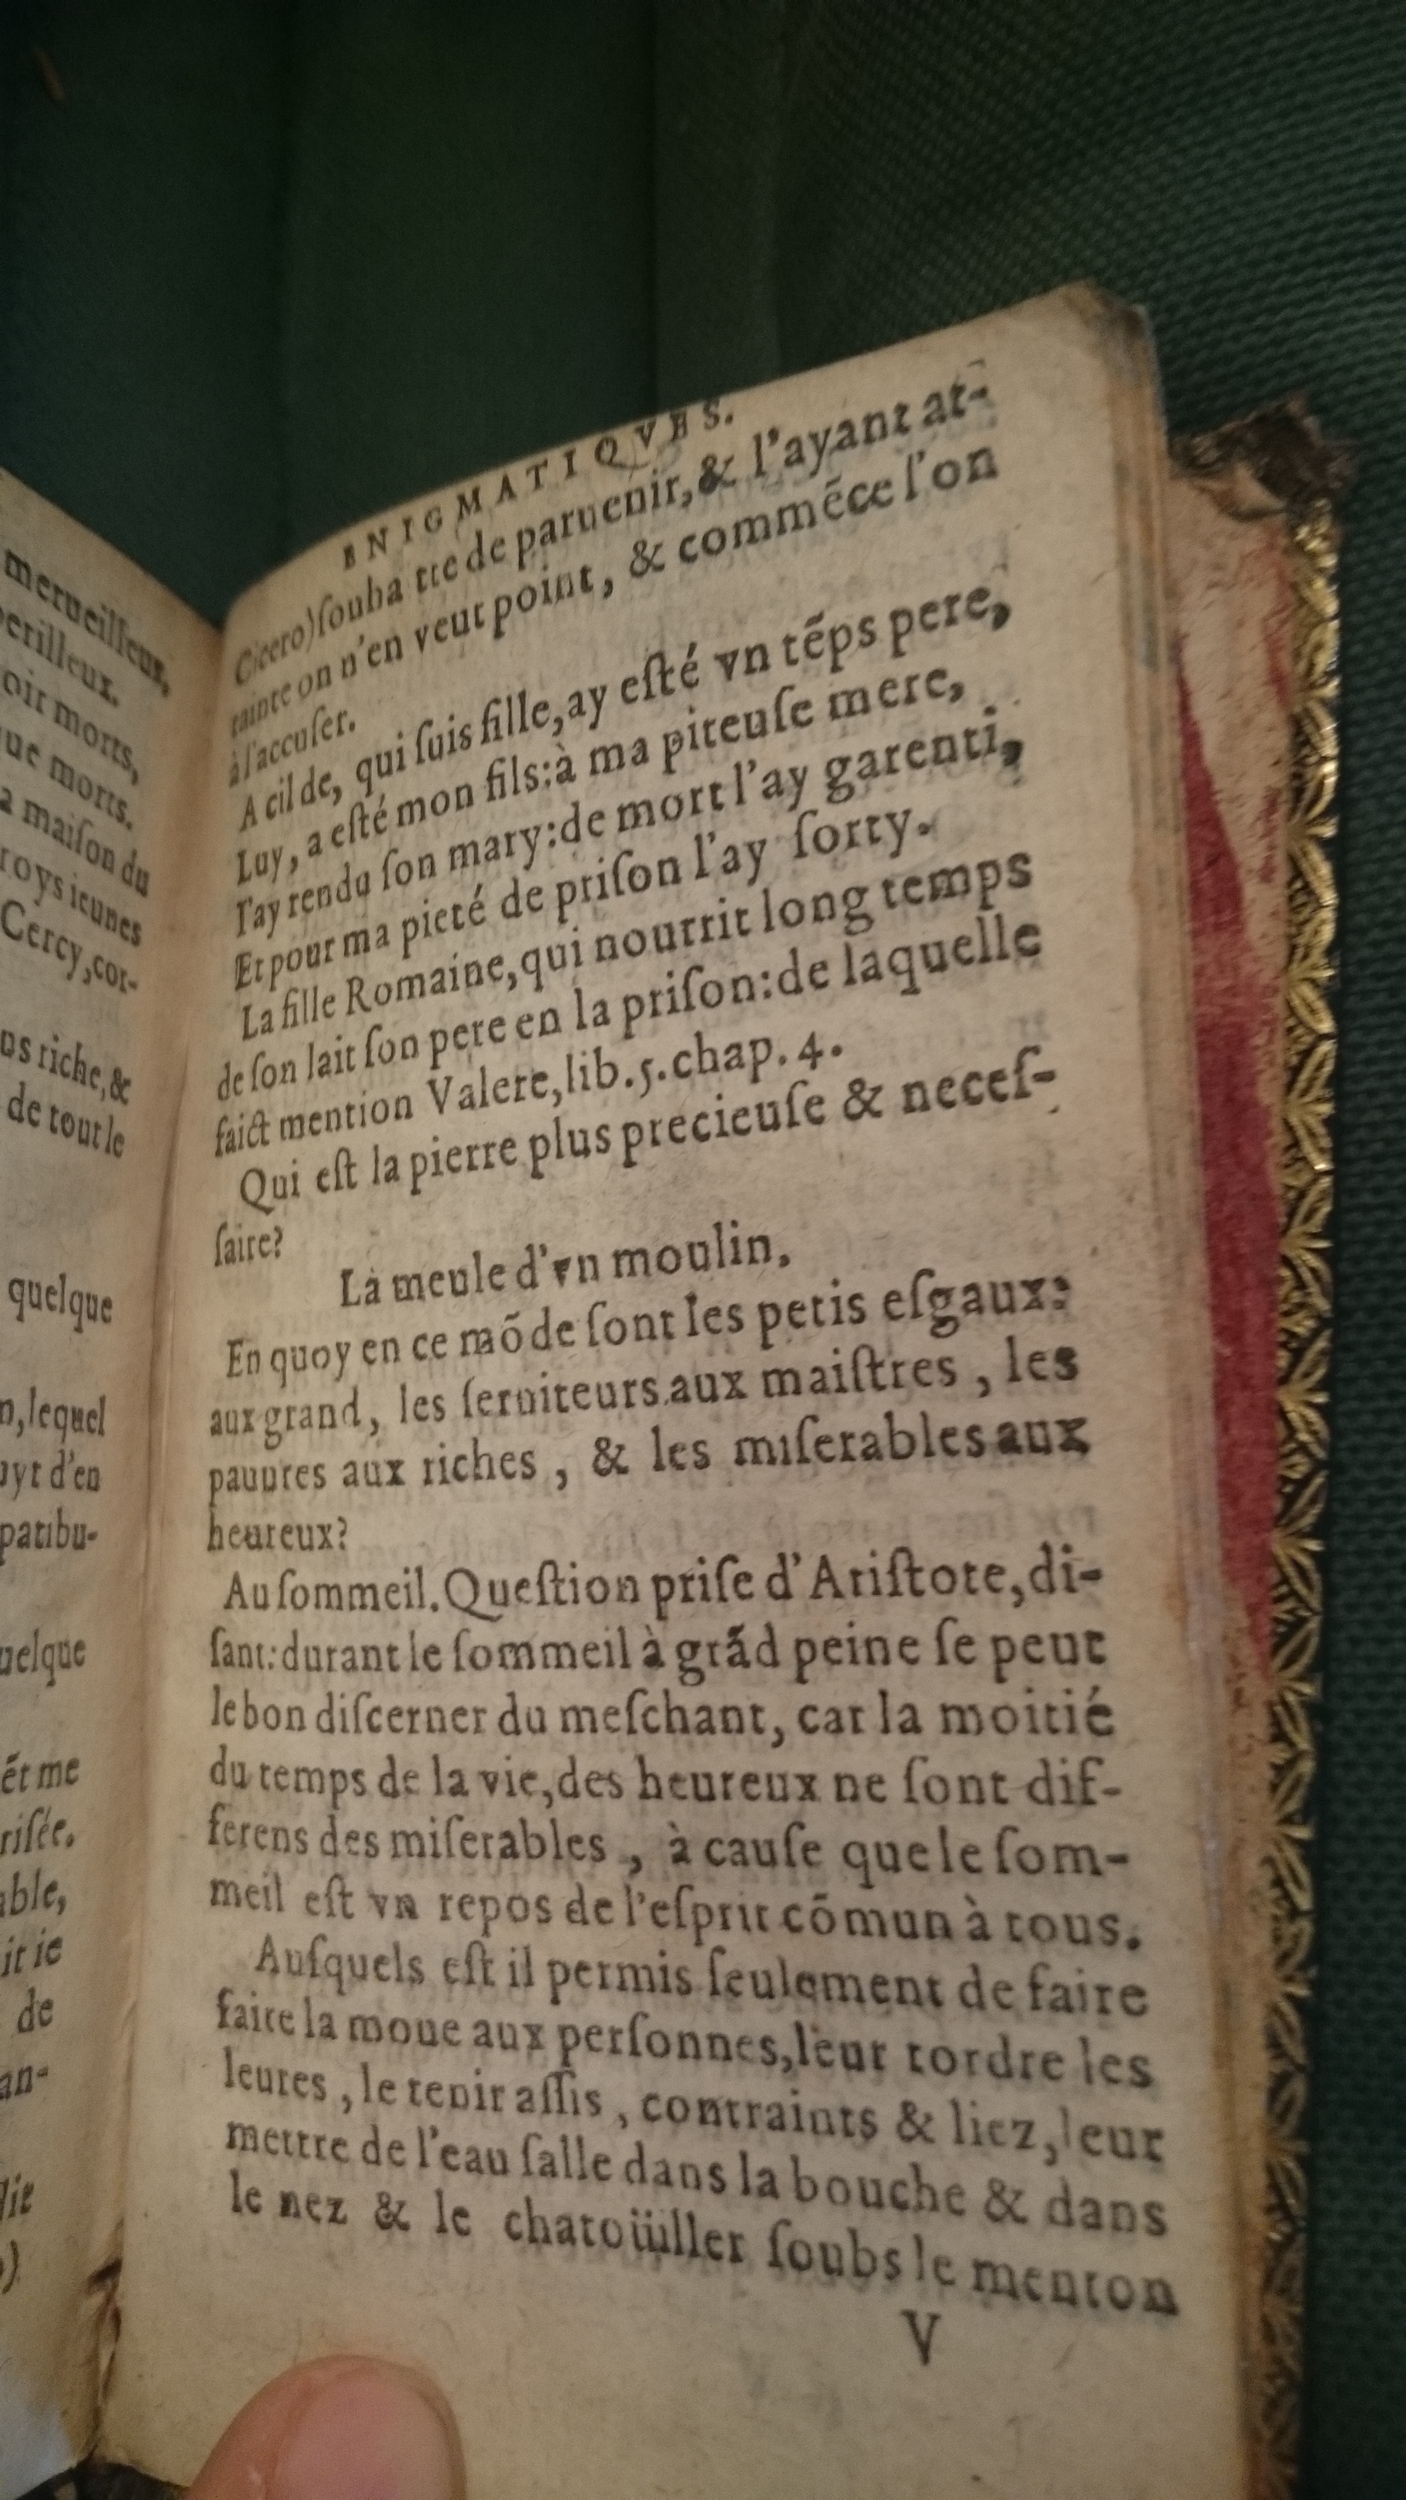 merueilleux,
perilleux.
oir morts,
que morts.
a maison du
roys ieunes
Cercy, cor-
us riche, &
de tout le
quelque
n, lequel
uyt d'en
patibu-
uelque
ét me
risée.
able,
it ie
de
an-
ENIGMATIQVES.
Cicero) souha tte de paruenir, & l'ayant at-
tainte on n'en veut point, & commēce l'on
à l'accuser.
A cil de, qui suis fille, ay esté vn tēps pere,
Luy, a esté mon fils: à ma piteuse mere,
I'ay rendu son mary: de mort l'ay garenti,
Et pour ma pieté de prison l'ay sorty.
La fille Romaine, qui nourrit long temps
de son lait son pere en la prison: de laquelle
faict mention Valere, lib. 5. chap. 4.
Qui est la pierre plus precieuse & neces-
saire?
La meule d'vn moulin.
En quoy en ce mōde sont les petis esgaux:
aux grand, les seruiteurs aux maistres, les
pauures aux riches, & les miserables aux
heureux?
Au sommeil. Question prise d'Aristote, di-
sant: durant le sommeil à grād peine se peut
le bon discerner du meschant, car la moitié
du temps de la vie, des heureux ne sont dif-
ferens des miserables, à cause que le som-
meil est vn repos de l'esprit cōmun à tous.
Ausquels est il permis seulement de faire
faire la moue aux personnes, leur tordre les
leures, le tenir assis, contraints & liez, leur
mettre de l'eau salle dans la bouche & dans
le nez & le chatoüiller soubs le menton
V